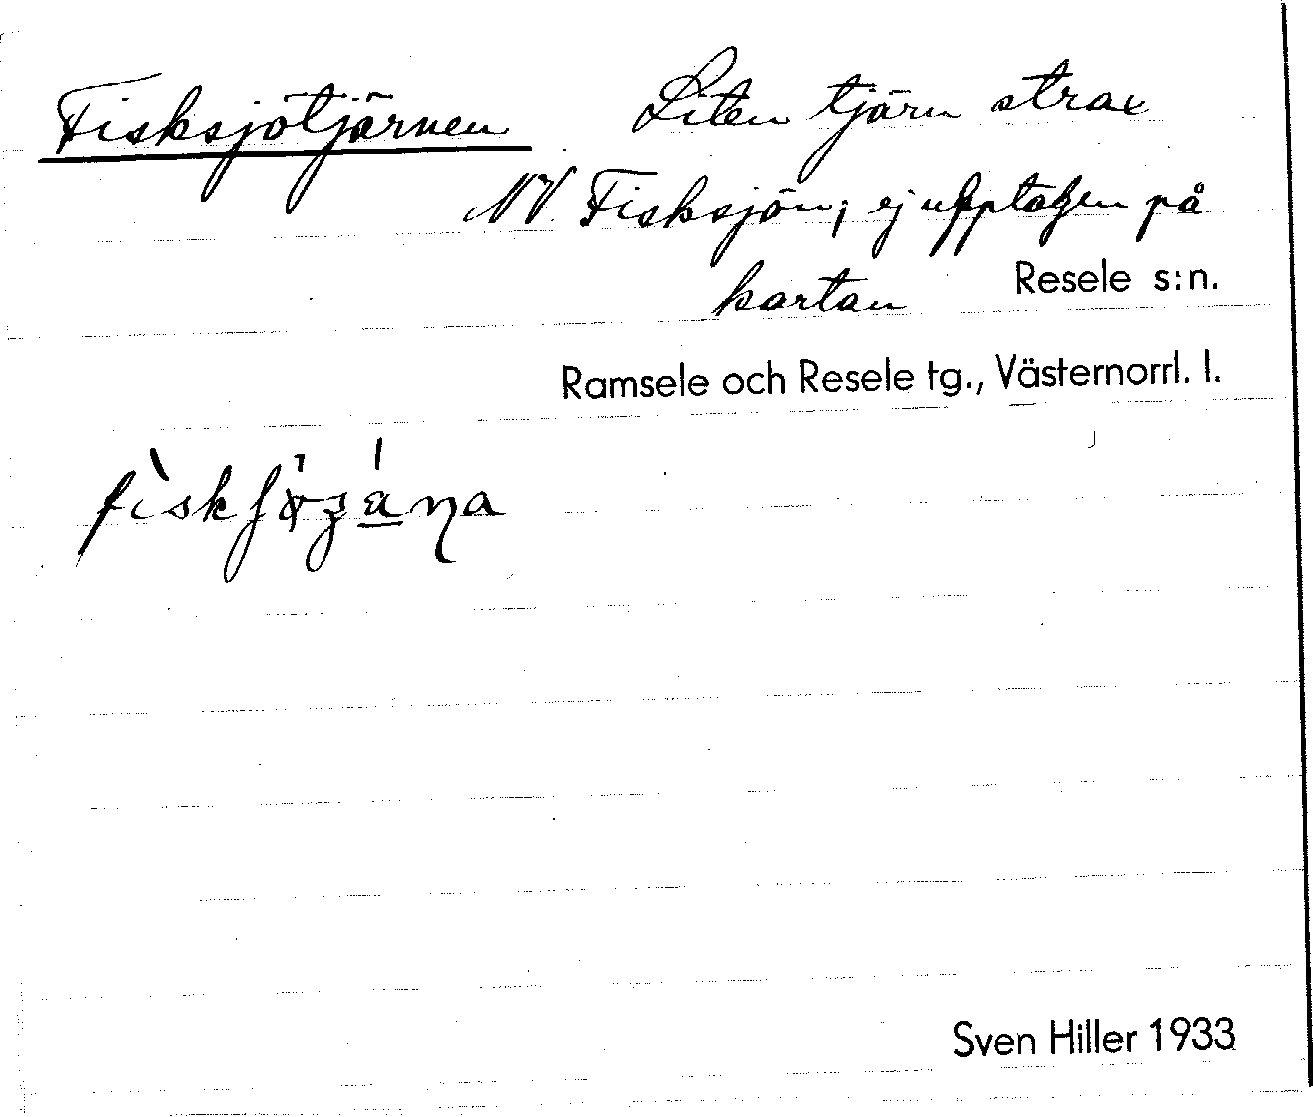 Fisksjötjärnen Liten tjärn strax
NV. Fisksjön; ej upptagen på
kartan Resele s:n.
Ramsele och Resele tg., Västernorrl. l.
Sven Hiller 1933